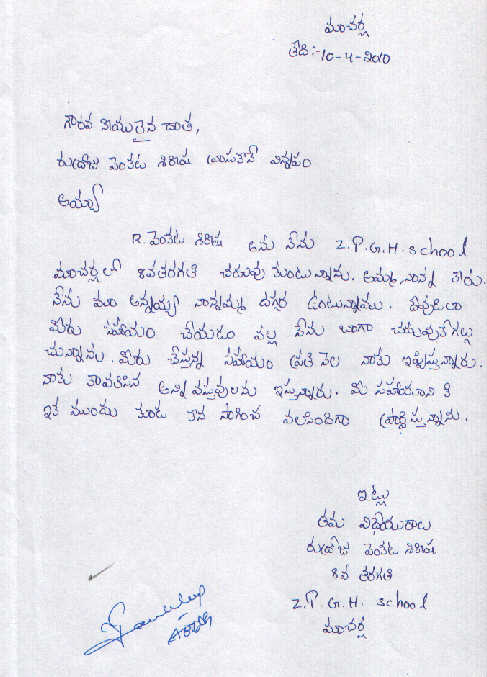 మాచర్ల
తేది:-10-4-2010
గౌరవ నీయులైన దాత,
రుద్రోజు వెంకట శిరీష వ్రాయునది విన్నపం
అయ్యా
R. వెంకట శిరీష అను నేను Z.P.G.H. school
మాచర్లలో 8వతరగతి చదువు చుంటున్నాను. అమ్మ, నాన్న లేరు.
నేను మా అన్నయ్య నాన్నమ్మ దగ్గర ఉంటున్నాము. ఇప్పుడిలా
మీరు సహాయం చేయడం వల్ల నేను బాగా చదువుకోగల్గు
చున్నాను. మీరు చేస్తున్న సహాయం ప్రతి నెల నాకు ఇప్పిస్తున్నారు.
నాకు కావలసిన అన్ని వస్తువులను ఇస్తున్నారు. మీ సహాయాని కి
ఇక ముందు కూడ కొన సాగించ వలసిందిగా ప్రార్థిస్తున్నాను.
ఇట్లు
తమ విధేయురాలు
రుద్రోజు వెంకట శిరీష
8వ తరగతి
Z.P.G.H. school
మాచర్ల